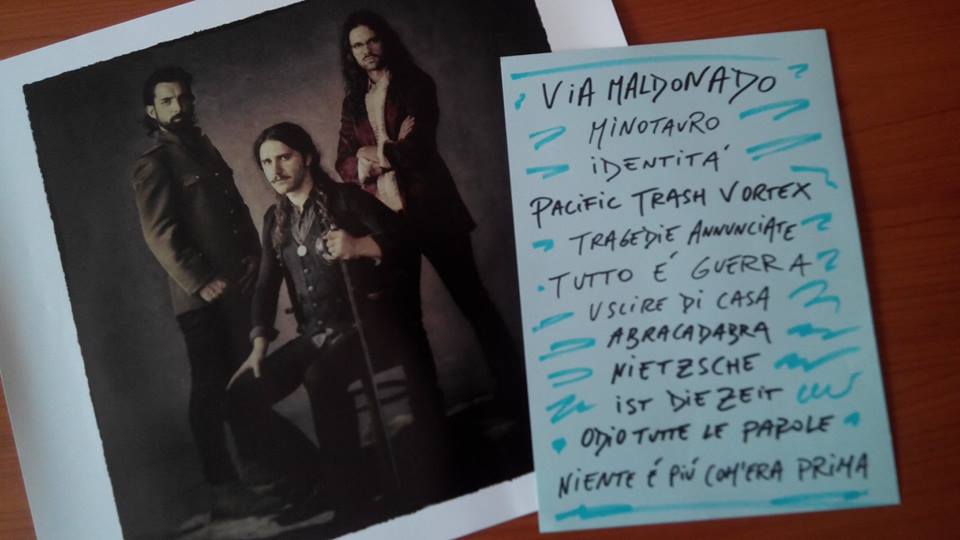 VIA MALDONADO
MINOTAURO
IDENTITA'
PACIFIC TRASH VORTEX
TRAGEDIE ANNUNCIATE
TUTTO É GUERRA
USCIRE DI CASA
ABRACADABRA
NIETZSCHE
IST DIE ZEIT
ODIO TUTTE LE PAROLE
NIENTE É PIÚ COM'ERA PRIMA